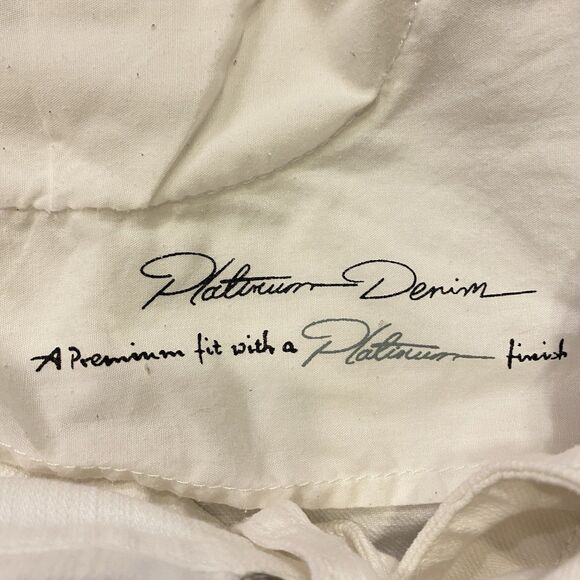 Platinum Denim
A Premium fit with a Platinum finish